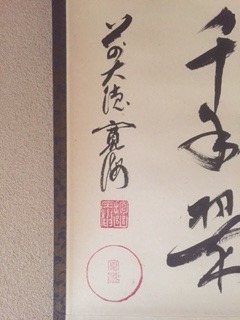 千年翠
前大徳寛